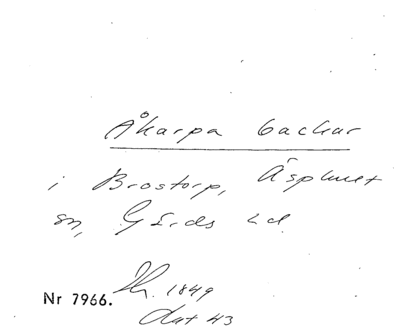 Åkarpa backar
i Brostorp, Äsphult
sn, Gärds hd
Nr 7966. 1849
dat 43